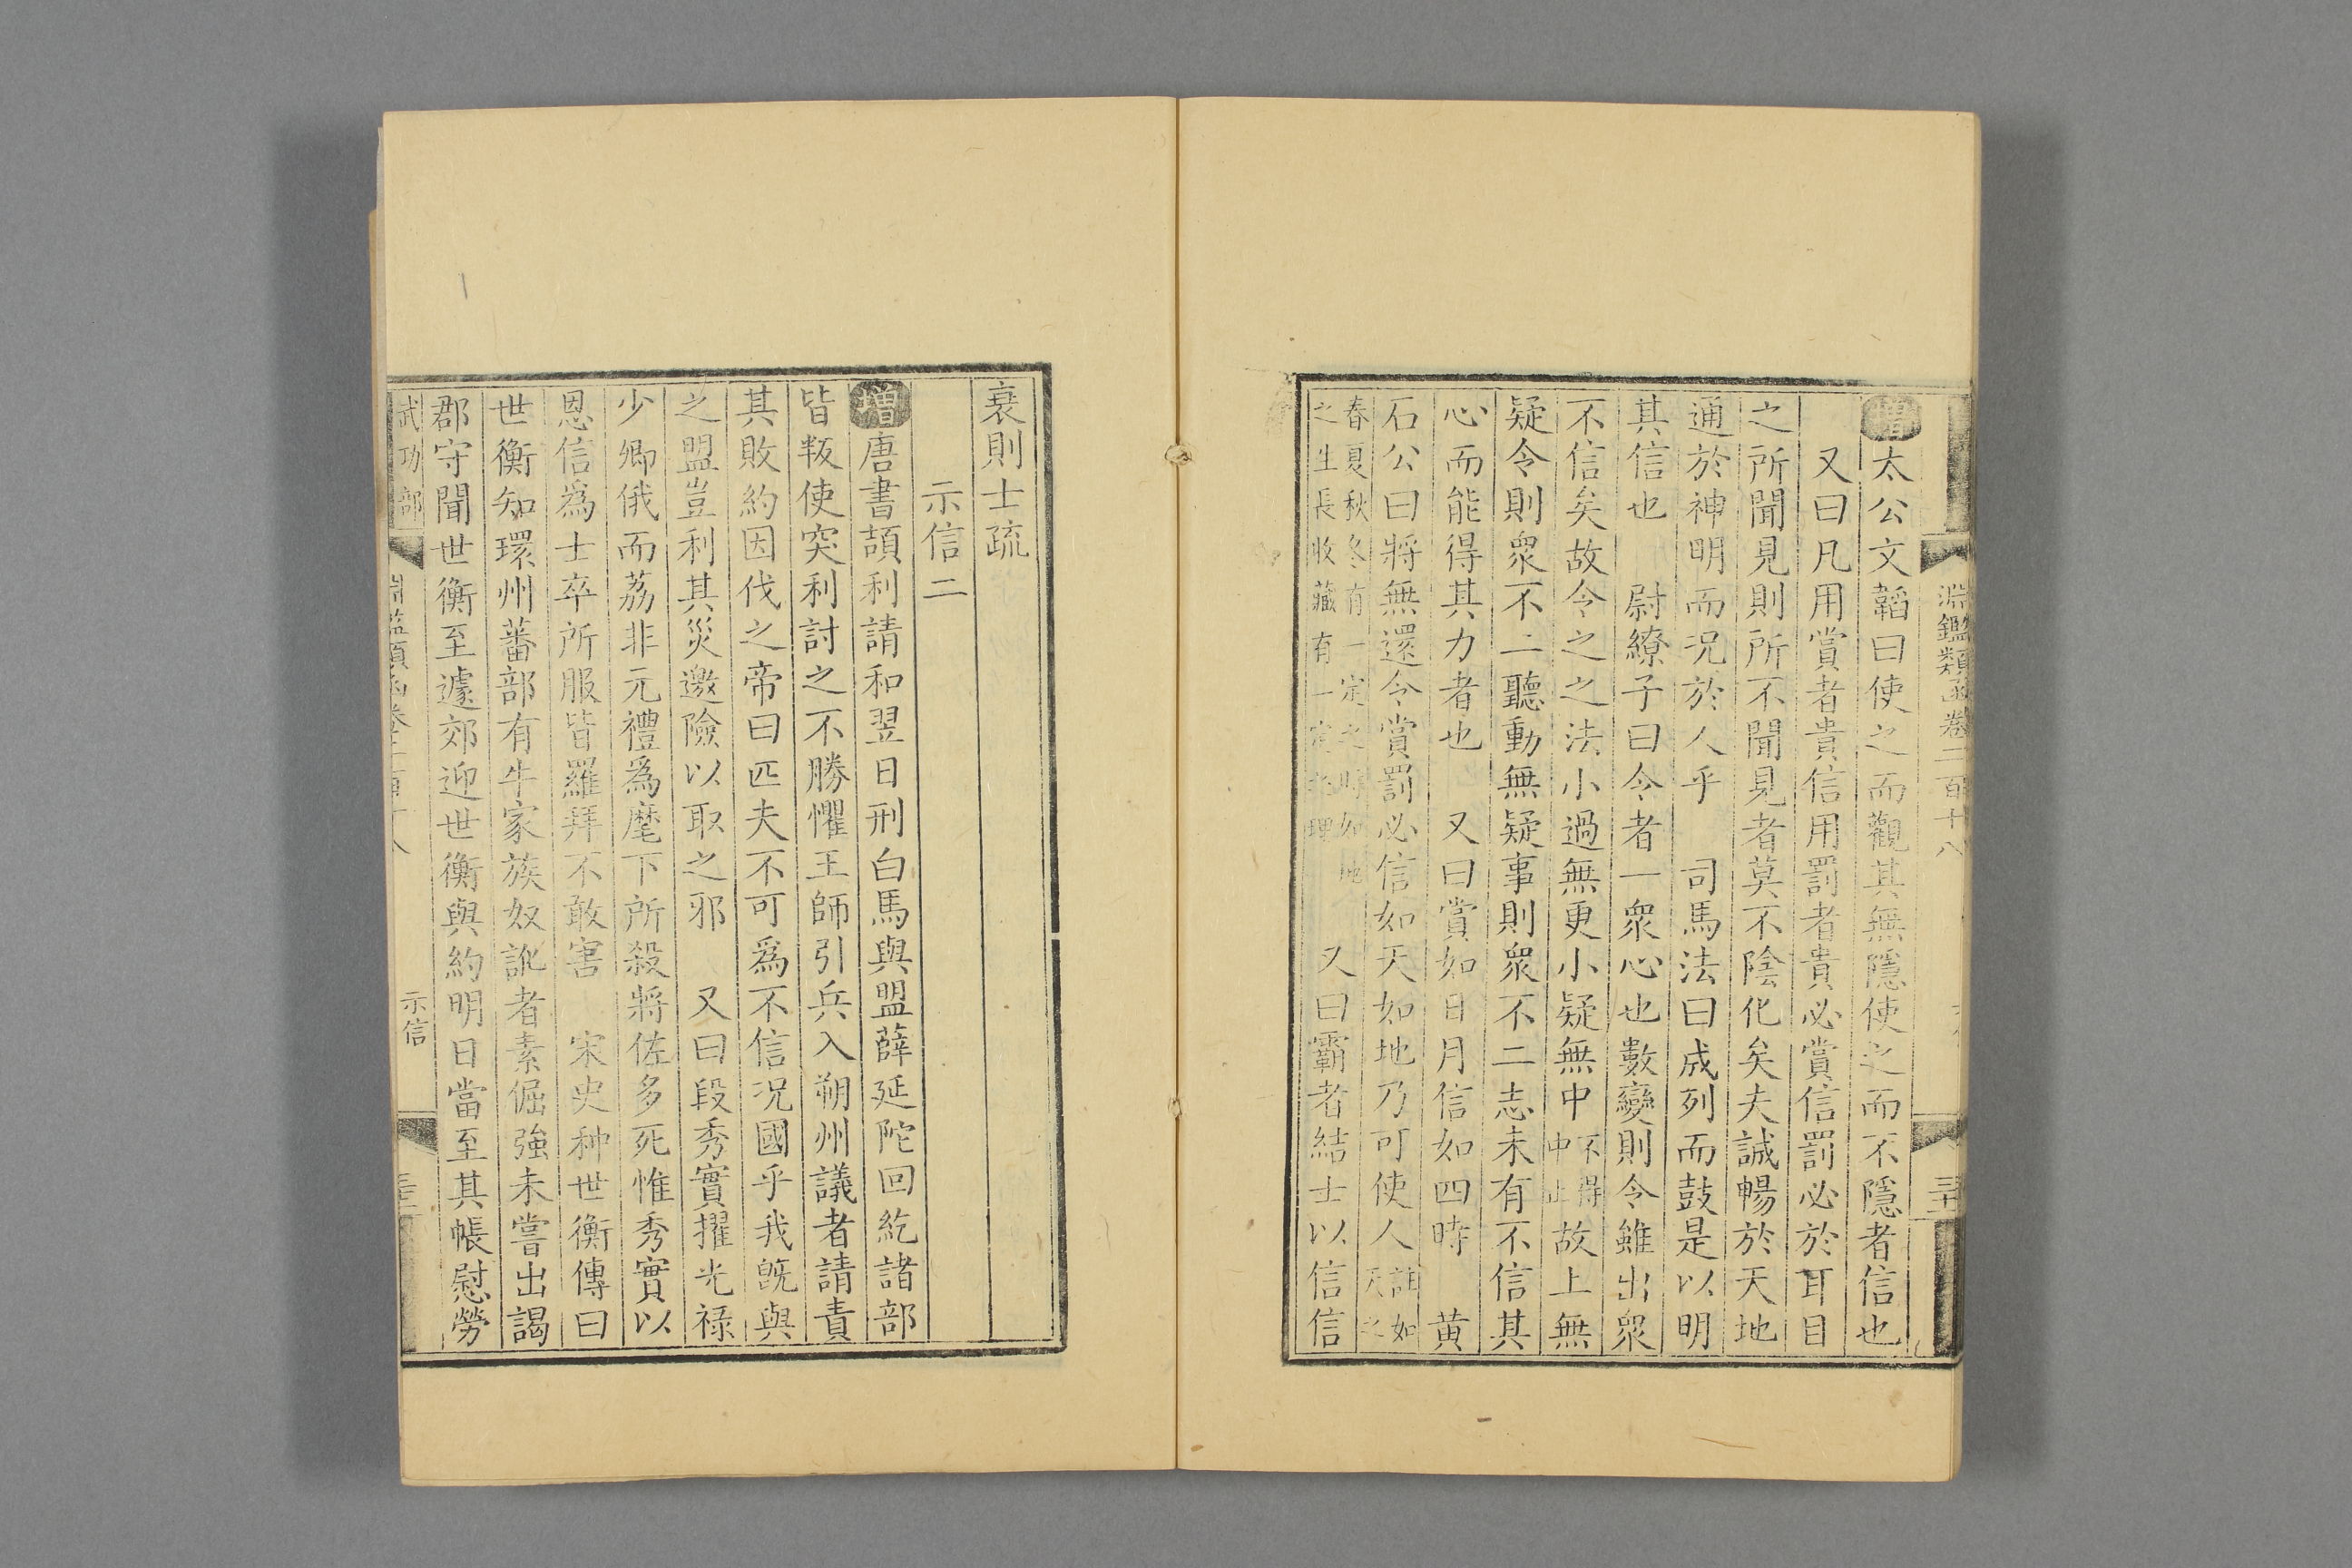 淵鑑類函卷二百十八
增太公文韜曰使之而觀其無隱使之而不隱者信也
又曰凡用賞者貴信用罰者貴必賞信罰必於耳目
之所聞見則所不聞見者莫不陰化矣夫誠暢於天地
通於神明而况於人乎 司馬法曰成列而鼓是以明
其信也 尉繚子曰令者一衆心也數變則令雖出衆
不信矣故令之之法小過無更小疑無中不得中止故上無
疑令則衆不二聽動無疑事則衆不二志未有不信其
心而能得其力者也 又曰賞如日月信如四時 黄
石公曰將無還令賞罰必信如天如地乃可使人註如天之
春夏秋冬有一定之時如地之生長收藏有一定之理 又曰霸者結士以信信
衰則士疏
示信二
增唐書頡利請和翌日刑白馬與盟薛延陀回紇諸部
皆叛使突利討之不勝懼王師引兵入朔州議者請責
其敗約因伐之帝曰匹夫不可爲不信况國乎我旣與
之盟豈利其災邀險以取之邪 又曰段秀實擢光祿
少卿俄而荔非元禮爲麾下所殺將佐多死惟秀實以
恩信爲士卒所服皆羅拜不敢害 宋史种世衡傳曰
世衡知環州蕃部有牛家族奴訛者素倔強未嘗出謁
郡守聞世衡至遽郊迎世衡與約明日當至其帳慰勞
武功部 淵鑑類函卷二百十八 示信